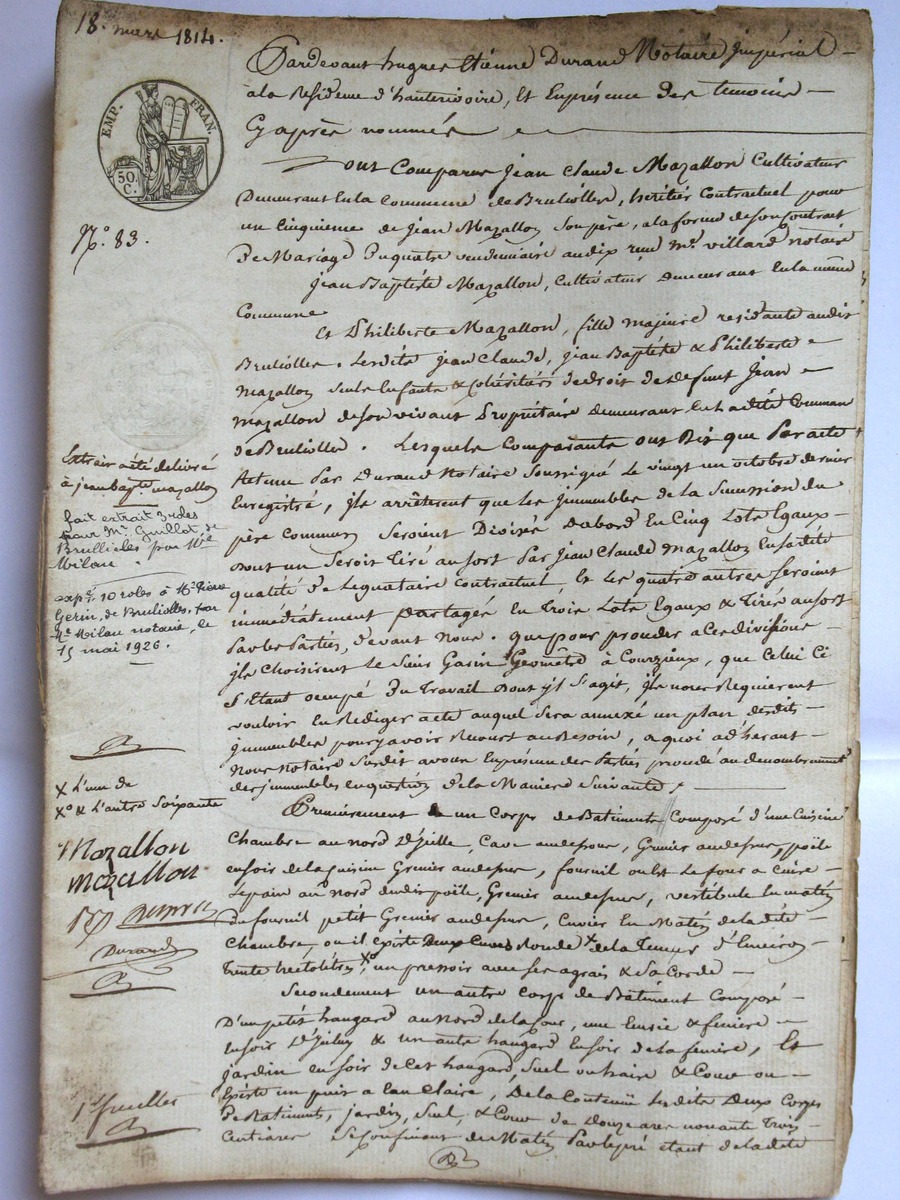 18. mars 1814.
EMP. FRAN.
50. C.
N.o 83.
Pardevant hugues Etienne Durand Notaire Imperial
a la Residence d'hauterivoire, Et En presence des temoins
Cy après nommés
Ont Comparus Jean Claude Mazallon Cultivateur
Demeurant En la Commune de Brulioles, heritier Contractuel pour
un Cinquieme de Jean Mazallon Son père, a la forme de son Contrat
De Mariage Du quatre vendemiaire an dix reçu me. villard notaire
Jean Baptiste Mazallon, Cultivateur Demeurant En la même
Commune
Et Philiberte Mazallon, fille majeure residante audit
Brulioles. Lesdits Jean Claude, Jean Baptiste & Philiberte
Mazallon Seuls Enfants & Cohéritiers de droit de defunt Jean
Mazallon de son vivant Propriétaire Demeurant En Ladite Commune
de Brulioles. Lesquels Comparants ont Dit que Par acte
Retenu par Durand Notaire Soussigné Le vingt un octobre dernier
Enregistré, Ils arrêterent que Les Immeubles de la Succession du
père Commun Seroient Divisés Dabord En Cinq Lots Egaux
dont un Seroit Tiré au sort Par Jean Claude Mazallon En sadite
qualité de Legataire Contractuel, Et Les quatre autres seroient
immédiatement partagés En Trois Lots Egaux & Tirés au sort
Par les Parties, devant Nous. que pour proceder a Ces divisions
ils Choisirent Le Sieur Gasin Géomètre à Courzieux, que Celui Ci
S'Etant occupé Du Travail Dont il S'agit, ils nous Requierent
vouloir En Rediger acte auquel Sera annexé un plan desdits
Immeubles pour y avoir Recourt au Besoin, a quoi adhérant
Nous Notaire Susdit avons En présence des Parties procédé au denombrement
des immeubles en question de la Maniere Suivante.
Premierement un Corps de Batiments Composé d'une Cuisine
Chambre au nord D'icelle, Cave au dessous, Grenier au dessus, poële
en soir de la Cuisine Grenier au dessus, fournil ou Est Le four a Cuire
Le pain au Nord dudit poële, Grenier au dessus, vestibule En matin
Du fournil petit Grenier au dessus, Cuvier En Matin de la dite
Chambre, ou il existe Deux Cuves Ronde x de la Teneur D'Environ
Trente hectolitres xo, un pressoir avec ses agrais & Sa Corde
Secondement un autre Corps de Bâtiment Composé
D'un petit hangard au Nord de la Cour, une Ecurie & feniere
En soir D'Icelui & un autre hangard En soir de la feniere, Et
Jardin En soir de Cet hangard, Suel ou haire & Cour ou
Existe un puit a Eau Claire, De la Contenue Lesdits Deux Corps
De Batiments, Jardin, Suel & Cour de Douze ares nonante Trois
Centiares Se Confinent de Matin Par le pré etant de ladite
Extrait a été delivré
à jean bapte. mazallon
fait extrait 3 roles
pour Mr. Guillot, de
Brullioles par Me
Milau.
expn. 10 roles à Mr.
Gerin, de Brulioles, par
Me Milau notaire, le
15 mai 1926.
x L'une de
xo & L'autre Soixante
Mazallon
Mazallon
Durand